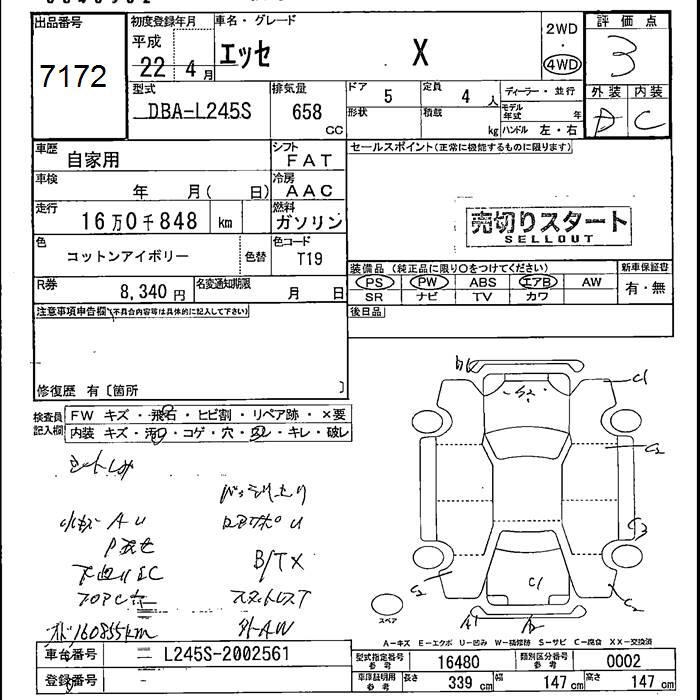 出品番号
7172
初度登録年月
平成
22 4 月
車名・グレード
エッセ X
2WD
・
4WD
評価点
3
外装 内装
D C
型式
DBA-L245S
排気量
658
CC
ドア
5
定員
4 人
形状
積載
kg
ディーラー・並行
モデル年式 年
ハンドル 左・右
車歴
自家用
シフト
FAT
セールスポイント(正常に機能するものに限ります)
車検
年 月( 日)
冷房
AAC
走行
16万0千848 km
燃料
ガソリン
売切りスタート
SELLOUT
色
コットンアイボリー
色替
色コード
T19
装備品(純正品に限り○をつけてください)
新車保証書
PS PW ABS エアB AW
有・無
SR ナビ TV カワ
R券
8,340 円
名変通知期限
月 日
後日品
注意事項申告欄(不具合内容等は具体的に記入して下さい)
修復歴 有〔箇所 〕
検査員記入欄
FW キズ・飛石・ヒビ割・リペア跡・×要
内装 キズ・汚れ・コゲ・穴・スレ・キレ・破レ
シートしみ
AU
B/TX
160855km
外-AW
C1
C2
C1
C2
C2
A1
A2
スペア
A-キズ E-エクボ U-凹み W-補修跡 S-サビ C-腐食 XX-交換済
車台番号
L245S-2002561
登録番号
-
型式指定番号
参考
16480
類別区分番号
参考
0002
車庫証明用
参考
長さ 339 cm 幅 147 cm 高さ 147 cm